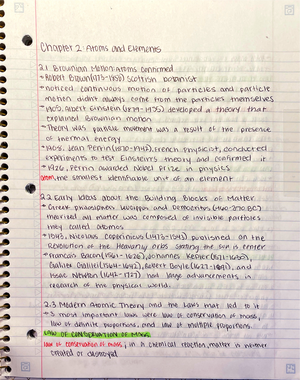 Chapter 2: Atoms and Elements
2.1 Brownian Motion: Atoms confirmed
→Robert Brown (1773-1858) Scottish botanist
→noticed continuous motion of particles and particle
motion didn't always come from the particles themselves
→1905, Albert Einstein (1879-1955) developed a theory that
explained Brownian motion
→Theory was particle movement was a result of the presence
of thermal energy
→1908, Jean Perrin (1870-1942), french physicist, conducted
experiments to test Einstein's theory and confirmed it
→1926, Perrin awarded Nobel Prize in physics
atom, the smallest identifiable unit of an element
2.2 Early Ideas about the Building Blocks of Matter
→Greek philosophers Leucippus and Democritus (460-370 BC)
theorized all matter was composed of invisible particles
they called atomos
→1543, Nicolaus Copernicus (1473-1543) published On the
Revolution of the Heavenly Orbs stating the sun is center
→Francis Bacon (1561-1626), Johannes Kepler (1571-1630),
Galileo Galilei (1564-1642), Robert Boyle (1627-1691), and
Isaac Newton (1642-1727) had large advancements in
research of the physical world.
2.3 Modern Atomic Theory and the Laws that led to it
→3 most important laws were law of conservation of mass,
law of definite proportions, and law of multiple proportions
LAW OF CONSERVATION OF MASS
law of conservation of mass, in a chemical reaction, matter is neither
created or destroyed